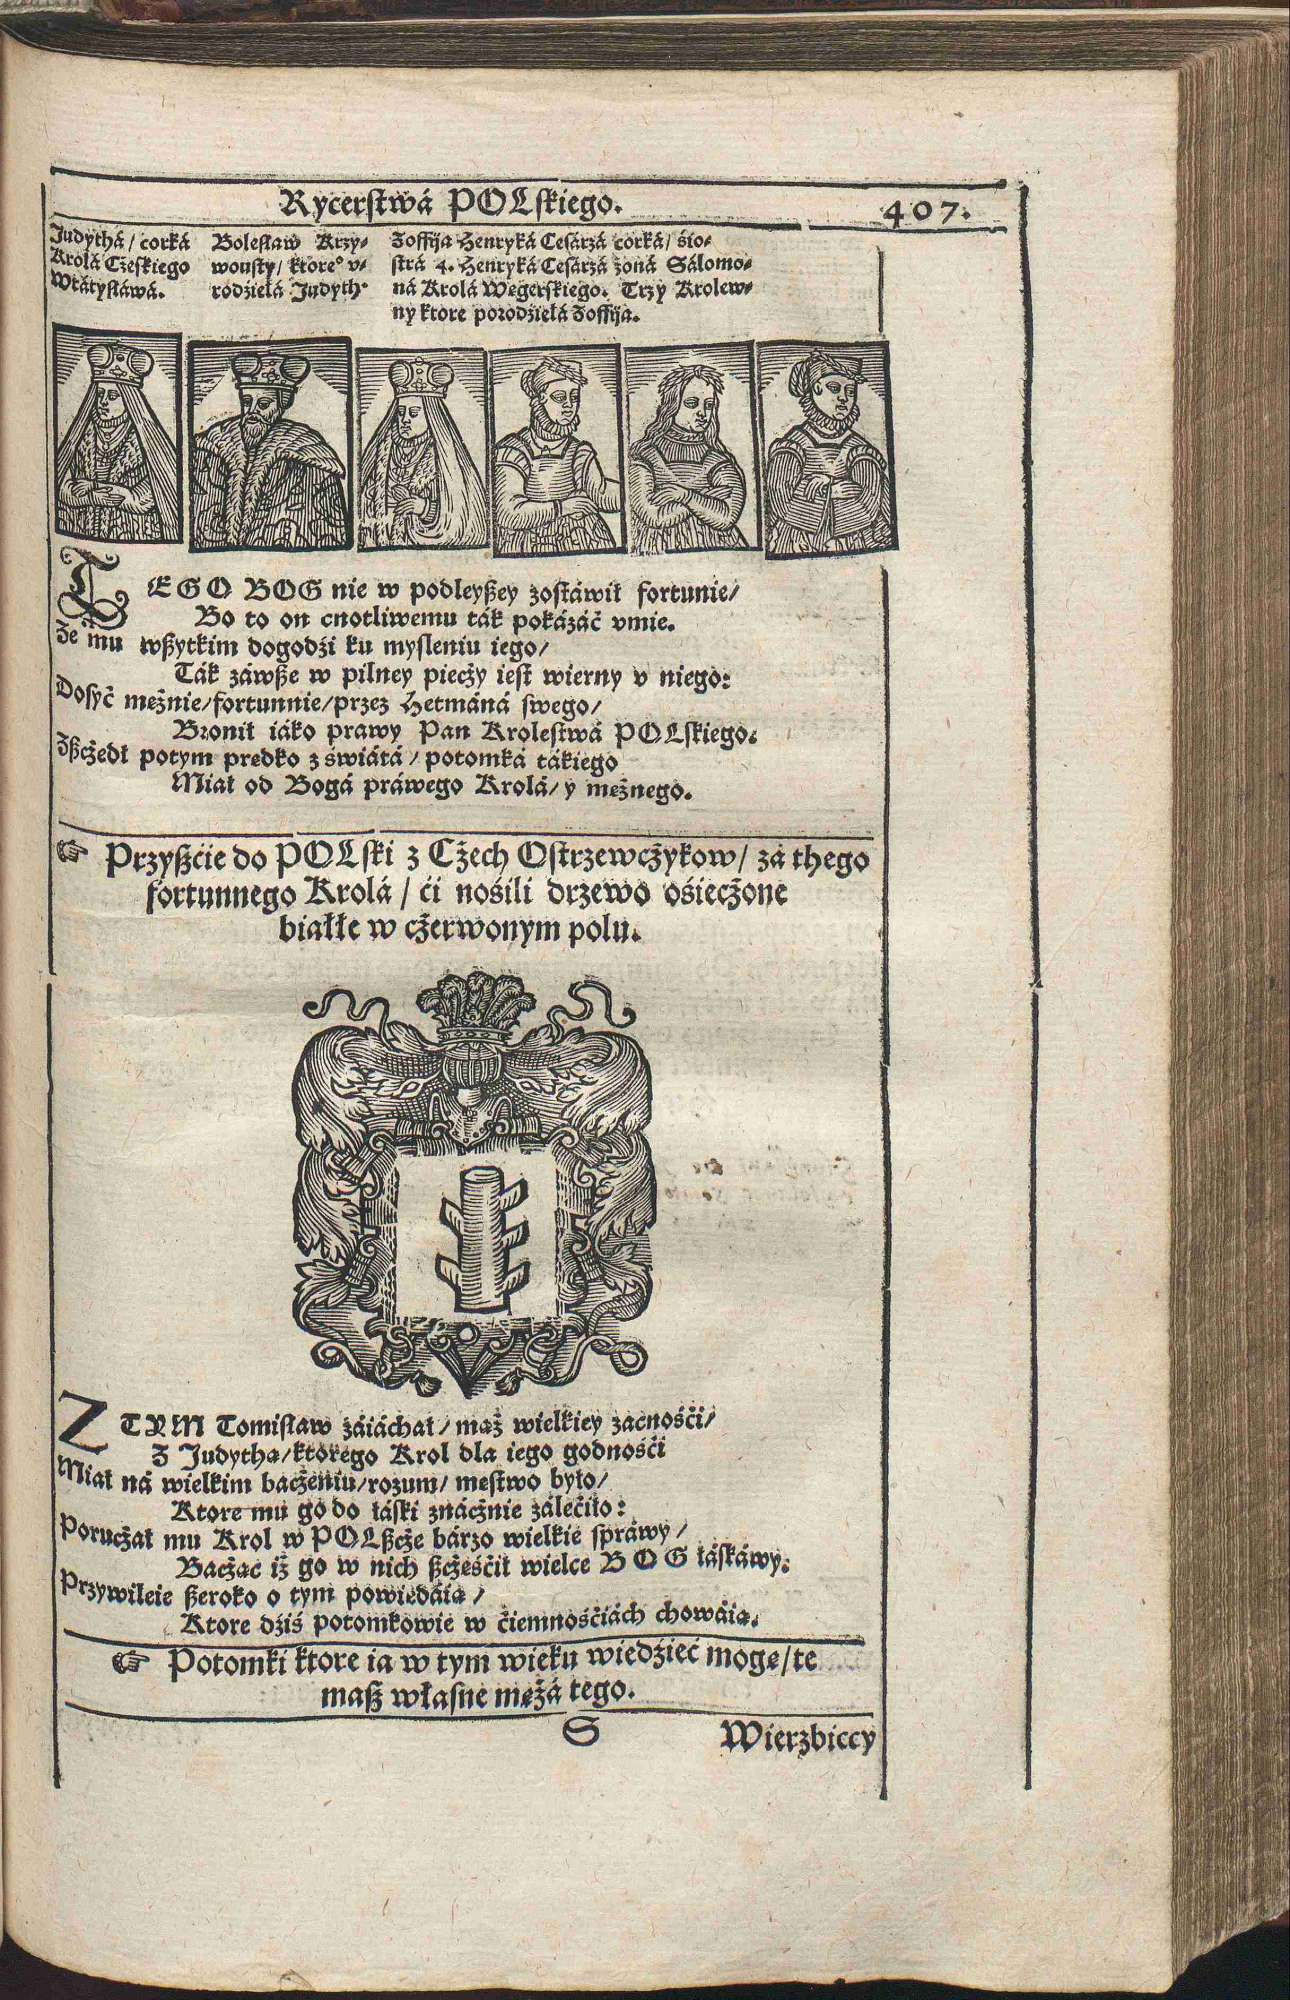 Rycerstwá POLskiego.
407.
Judythá/ corká
Krolá Cżeskiego
Wrátysłáwá.
Bolesław Krzy-
wousty/ ktore° v-
rodźiełá Judyth·
Zoffija Henryká Cesárzá corká/ śio-
strá 4. Henryká Cesárzá żoná Sálomo-
ná Krolá Węgerskiego. Trzy Krolew-
ny ktore porodźiełá Zoffija.
TEGO BOG nie w podleyßey zostáwił fortunie/
Bo to on cnotliwemu ták pokázáć vmie.
Że mu wßytkim dogodźi ku mysleniu iego/
Ták záwße w pilney piecży iest wierny v niego:
Dosyć mężnie/fortunnie/przez Hetmáná swego/
Bronił iáko prawy Pan Krolestwá POLskiego.
Zßcżedł potym prędko z świátá/ potomká tákiego
Miał od Bogá práwego Krolá/ y mężnego.
☞ Przyßćie do POLski z Cżech Ostrzewcżykow/ zá thego
fortunnego Krolá/ ći nośili drzewo ośiecżone
białłe w cżerwonym polu.
Z TYM Tomisław záiáchał/ mąż wielkiey zacnośći/
Z Judythą/ktorego Krol dla iego godnośći
Miał ná wielkim bacżeniu/rozum/ męstwo było/
Ktore mu go do łáski znácżnie zálećiło:
Porucżał mu Krol w POLßcże bárzo wielkie spráwy/
Bacżąc iż go w nich ßcżęśćił wielce BOG łáskáwy.
Przywileie ßeroko o tym powiedáią/
Ktore dźiś potomkowie w ćiemnośćiách chowáią.
☞ Potomki ktore ia w tym wieku wiedźieć mogę/te
maß własne mężá tego.
S
Wierzbiccy